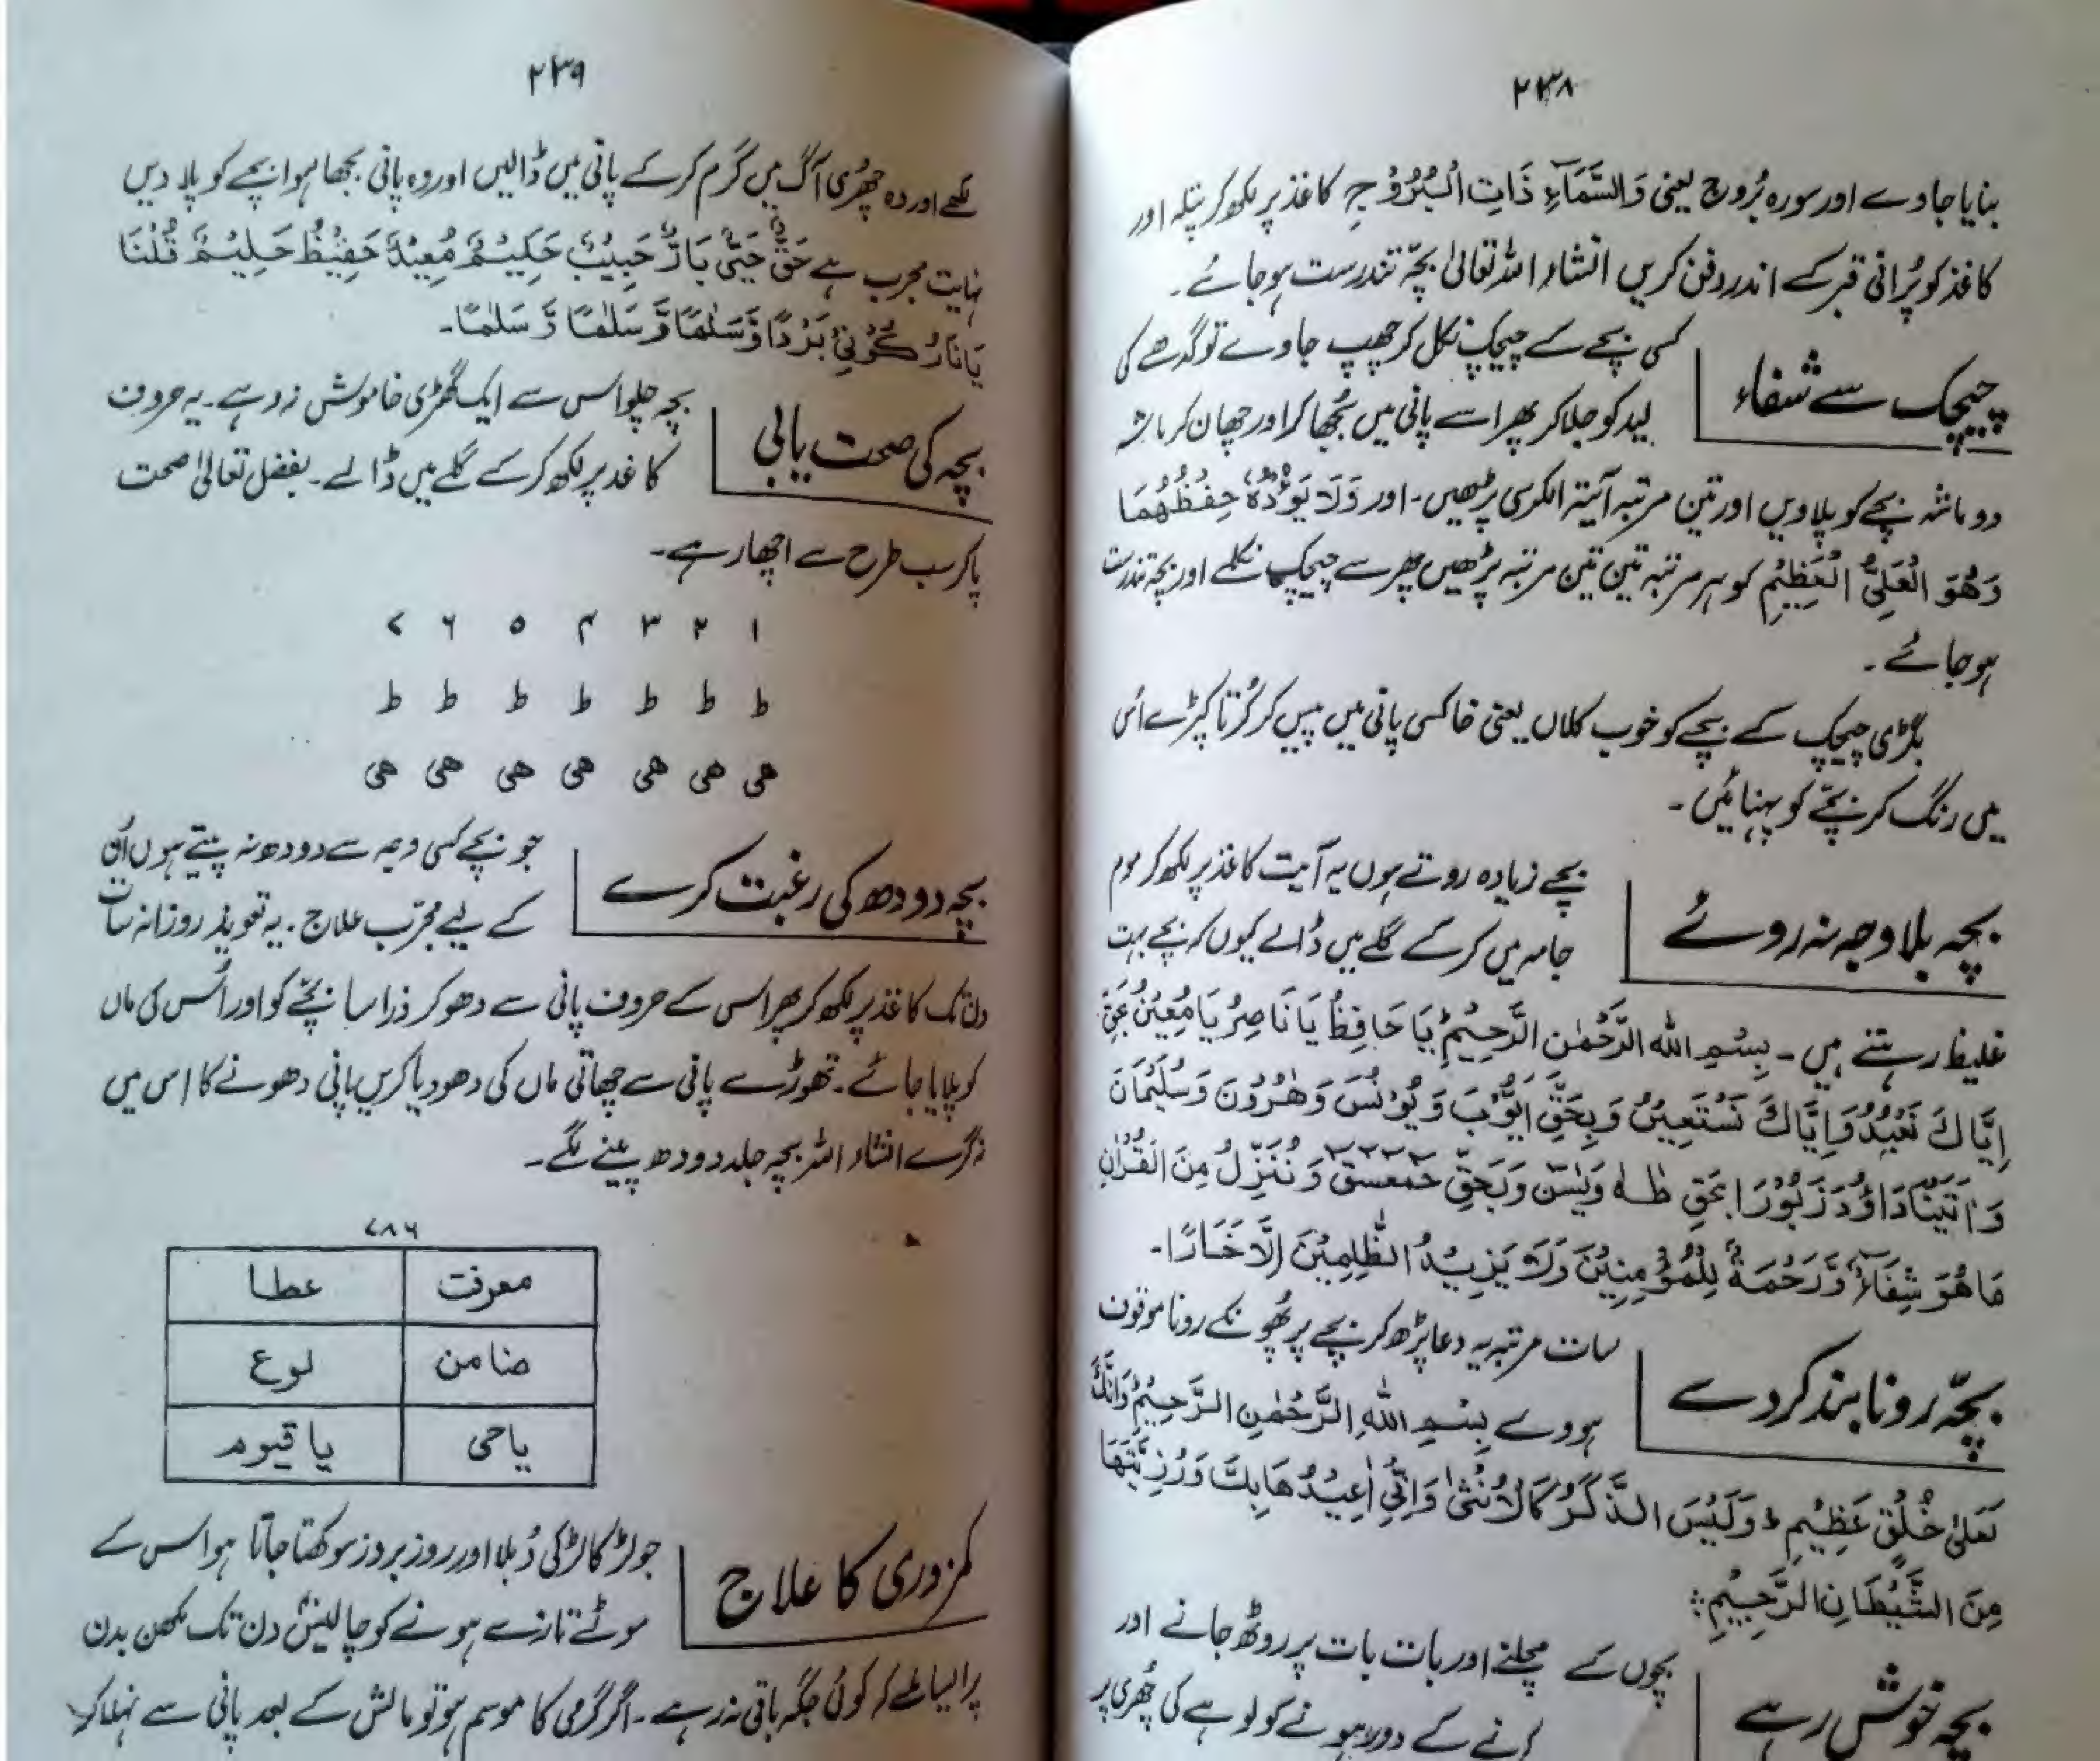 ۲۳۸
بنایا جاوے اور سورہ بُروج یعنی وَالسَّمَآءِ ذَاتِ الْبُرُوْجِ کاغذ پر لکھ کر پتلہ اور
کاغذ کو پُرانی قبر کے اندر دفن کریں انشاء اللہ تعالیٰ بچّہ تندرست ہو جائے۔
چیچک سے شفاء
کسی بچے کے چیچک نکل کر چھپ جاوے تو گدھے کی
لید کو جلا کر پھر اسے پانی میں بُجھا کر اور چھان کر ماشہ
دو ماشہ بچے کو پلاویں اور تین مرتبہ آیتہ الکرسی پڑھیں۔ اور وَلَا یَؤُدُہٗ حِفْظُھُمَا
وَھُوَ الْعَلِیُّ الْعَظِیْمِ کو ہر مرتبہ تین تین مرتبہ پڑھیں پھر سے چیچک نکلے اور بچہ تندرست
ہو جائے۔
بگڑی چیچک کے بچے کو خوب کلاں یعنی خاکسی پانی میں پیس کر کُرتا کپڑے اُس
میں رنگ کر بچّے کو پہنائیں۔
بچہ بلا وجہ نہ روئے
بچے زیادہ روتے ہوں یہ آیت کاغذ پر لکھ کر موم
جامہ میں کر کے گلے میں ڈالے کیوں کہ بچے بہت
غلیظ رہتے ہیں۔ بِسْمِ اللہ الرَّحْمٰنِ الرَّحِیْمِ یَا حَافِظُ یَا نَاصِرُ یَا مُعِیْنُ بِحَقِّ
اِیَّاكَ نَعْبُدُ وَاِیَّاكَ نَسْتَعِیْنُ وَبِحَقِّ اَیُّوْبَ وَ یُوْنُسَ وَھٰرُوْنَ وَسُلَیْمَانَ
وَاٰتَیْنَا دَاوٗدَ زَبُوْرَا بحَقِ طٰہٰ وَیٰسٓ وَبَحَقِّ حٓمٓعٓسٓقٓ وَنُنَزِّلُ مِنَ الْقُرْاٰنِ
مَا ھُوَ شِفَآءٌ وَّرَحْمَۃٌ لِلْمُؤْمِنِیْنَ وَلَا یَزِیْدُ الظّٰلِمِیْنَ اِلَّا خَسَارًا۔
بچّہ رونا بند کر دے
سات مرتبہ یہ دعا پڑھ کر بچے پر پُھونکے رونا موقوف
ہووے بِسْمِ اللہِ الرَّحْمٰنِ الرَّحِیْمِ وَاِنَّكَ
لَعَلیٰ خُلُقٍ عَظِیْمٍ وَلَیْسَ الذَّکَرُ کَالْاُنْثیٰ وَاِنِّیْ اُعِیْذُھَا بِكَ وَذُرِّیَّتَھَا
مِنَ الشَّیْطَانِ الرَّجِیْمِ
بچہ خوش رہے
بچوں کے مچلنے اور بات بات پر روٹھ جانے اور
کرنے کے دور ہونے کو لوہے کی چُھری پر
۲۳۹
لکھے اور وہ چھری آگ میں گرم کر کے پانی میں ڈالیں اور وہ پانی بجھا ہوا بچے کو پلا دیں
نہایت مجرب ہے حَقٌّ حَیٌّ بَارٌّ حَبِیْبٌ حَکِیْمٌ مُعِیْدٌ حَفِیْظٌ حَلِیْمٌ قُلْنَا
یَا نَارُ کُوْنِیْ بَرْدًا وَّسَلٰمًا وَّ سَلٰمًا وَّ سَلٰمًا۔
بچہ کی صحت یابی
بچہ چلوا اس سے ایک گھڑی خاموش نہ رہے۔ یہ حروف
کاغذ پر لکھ کر کے گلے میں ڈالے۔ بفضل تعالیٰ صحت
پا کر سب طرح سے اچھا رہے۔
۱ ۲ ۳ ۴ ۵ ۶ ۷
ط ط ط ط ط ط ط
ھی ھی ھی ھی ھی ھی ھی
بچہ دودھ کی رغبت کرے
جو بچے کسی وجہ سے دودھ نہ پیتے ہوں اُن
کے لیے مجرّب علاج۔ یہ تعویذ روزانہ سات
دن تک کاغذ پر لکھ کر پھر اس کے حروف پانی سے دھو کر ذرا سا بچّے کو اور اُس کی ماں
کو پلایا جائے۔ تھوڑے پانی سے چھاتی ماں کی دھو دیا کریں پانی دھونے کا اس میں
نہ گرے انشاء اللہ بچہ جلد دودھ پینے لگے۔
۷۸۶
معرفت عطا
ضامن لوع
یاحی یا قیوم
کمزوری کا علاج
جو لڑکا لڑکی دُبلا اور روز بروز سوکھتا جاتا ہو اس کے
موٹے تازے ہونے کو چالیس دن تک مکھن بدن
پر ایسا ملے کہ کوئی جگہ باقی نہ رہے۔ اگر گرمی کا موسم ہو تو مالش کے بعد پانی سے نہلا کر